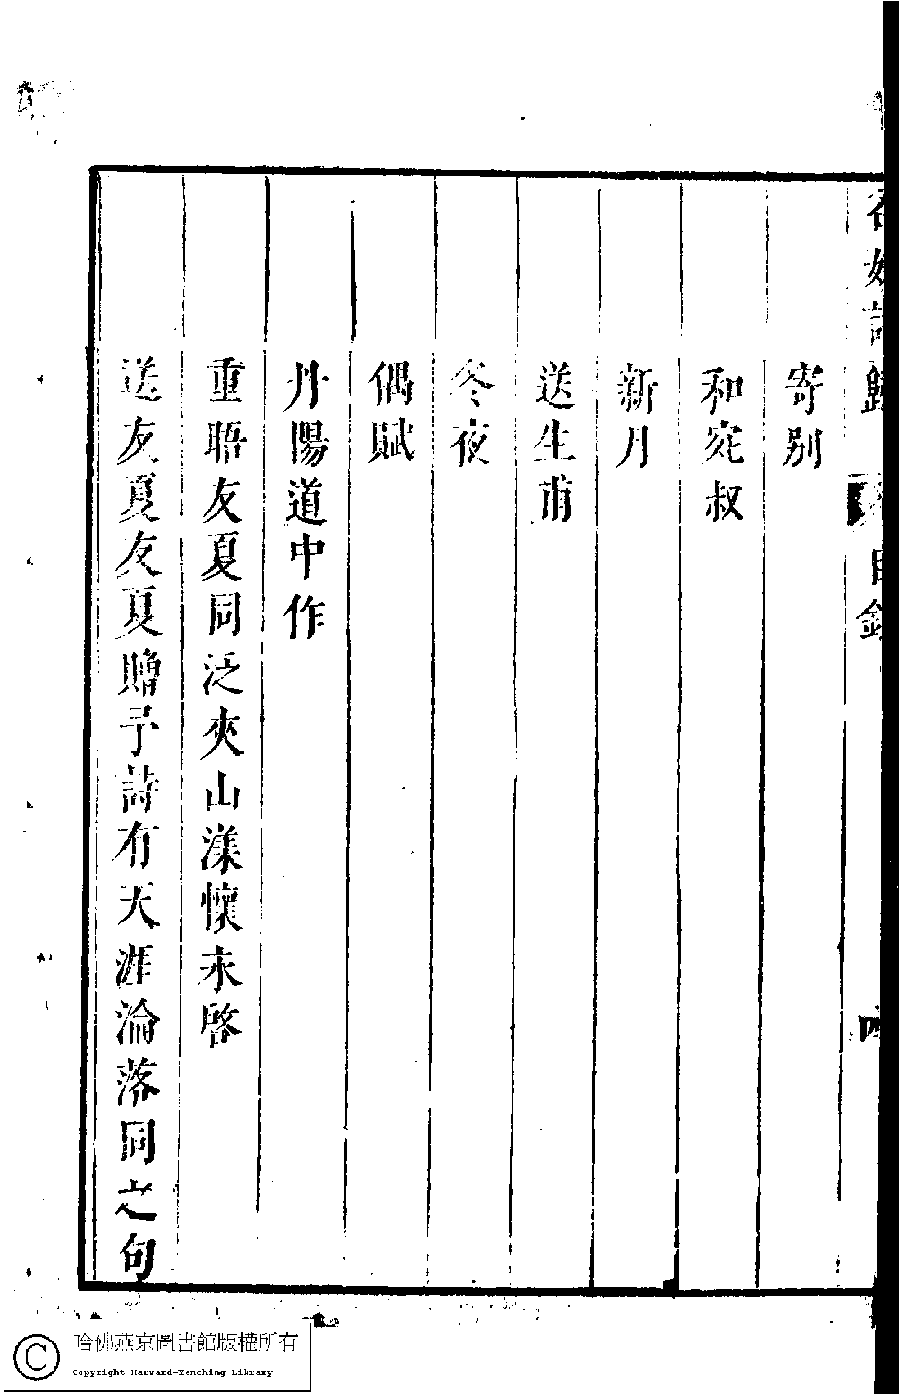 寄别
和宛叔
新月
送生甫
冬夜
偶賦
丹陽道中作
重晤友夏同泛夾山漾懷未啓
送友夏友夏贈予詩有天涯淪落同之句
詩歸
目錄
四
哈佛燕京圖書館版權所有
Copyright Harvard-Yenching Library